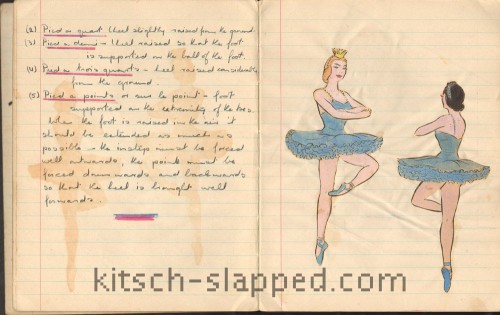 (2) Pied a quart (heel slightly raised from the ground.
(3) Pied a demi - heel raised so that the foot
is supported on the ball of the foot.
(4) Pied a trois quarts - heel raised considerably
from the ground
(5) Pied a points or sur le point - foot
supported on the extremity of the toes.
When the foot is raised in the air it
should be extended as much as
possible - the insteps must be forced
well outwards, the points must be
forced downwards and backwards
so that the heel is brought well
forwards.
kitsch-slapped.com